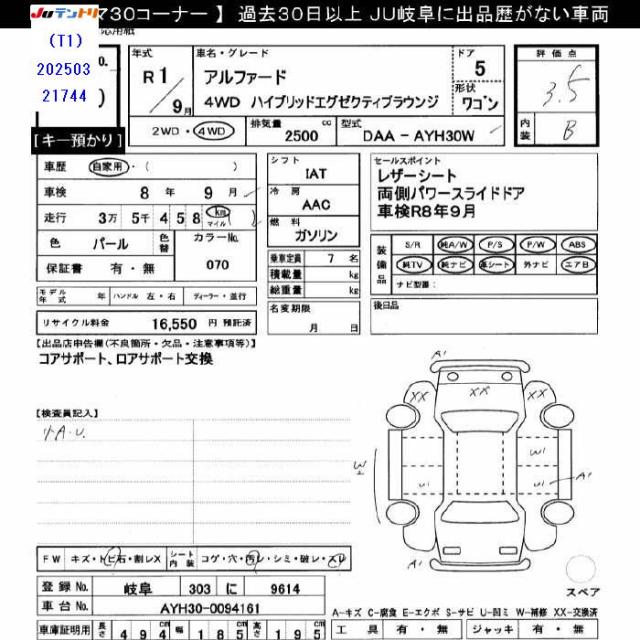 JUテントリ
マ30コーナー 】 過去30日以上 JU岐阜に出品歴がない車両
(T1)
202503
21744
【キー預かり】
年式 R1/9月
車名・グレード
アルファード
4WD ハイブリッドエグゼクティブラウンジ
ドア 5
形状 ワゴン
2WD・4WD
排気量 2500 cc
型式 DAA-AYH30W
評価点 3.5
内装 B
車歴 自家用・( )
車検 8 年 9 月
走行 3万 5千 4 5 8 km マイル
色 パール 色替
カラーNo. 070
保証書 有・無
モデル年式 年 ハンドル 左・右 ディーラー・並行
リサイクル料金 16,550 円 預託済
シフト IAT
冷房 AAC
燃料 ガソリン
乗車定員 7 名
積載量 kg
総重量 kg
名変期限 月 日
セールスポイント
レザーシート
両側パワースライドドア
車検R8年9月
装備品
S/R 純A/W P/S P/W ABS
純TV 純ナビ 革シート 外ナビ エア日
ナビ型番:
後日品
【出品店申告欄(不良箇所・欠品・注意事項等)】
コアサポート、ロアサポート交換
【検査員記入】
小A.U.
A1
XX XX XX
W2
W1
U1 U1 A1
A1
スペア
FW キズ・トビ石・割レX シート内装 コゲ・穴・汚レ・シミ・破レ・スレ
登録No. 岐阜 303 に 9614
車台No. AYH30-0094161
車庫証明用 長さ 494 幅 185 高さ 195
A-キズ C-腐食 E-エクボ S-サビ U-凹ミ W-補修 XX-交換済
工具 有・無 ジャッキ 有・無